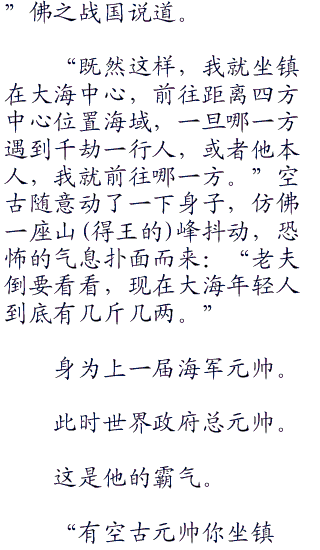 ”佛之战国说道。
“既然这样，我就坐镇
在大海中心，前往距离四方
中心位置海域，一旦哪一方
遇到千劫一行人，或者他本
人，我就前往哪一方。”空
古随意动了一下身子，仿佛
一座山(得王的)峰抖动，恐
怖的气息扑面而来：“老夫
倒要看看，现在大海年轻人
到底有几斤几两。”
身为上一届海军元帅。
此时世界政府总元帅。
这是他的霸气。
“有空古元帅你坐镇